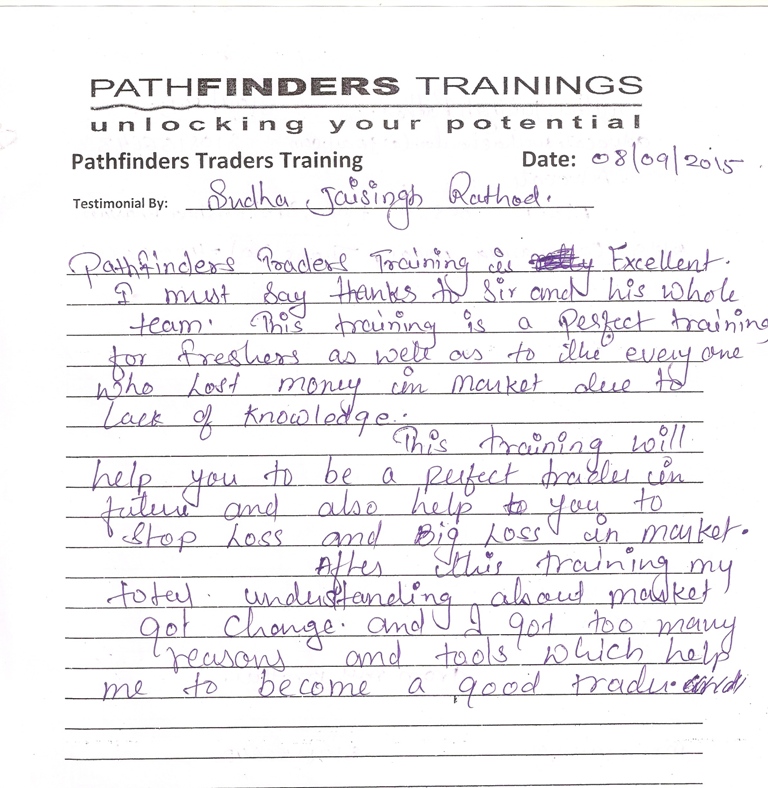 PATHFINDERS TRAININGS
unlocking your potential
Pathfinders Traders Training Date: 08/09/2015.
Testimonial By: Sudha Jaisingh Rathod.
Pathfinders Traders Training is Excellent.
I must say thanks to Sir and his whole
team. This training is a perfect training
for freshers as well as to the every one
who Lost money in market due to
Lack of knowledge.
This training will
help you to be a perfect trader in
future and also help to you to
Stop Loss and Big Loss in market.
After this training my
total understanding about market
got change. and I got too many
reasons and tools which help
me to become a good trader.